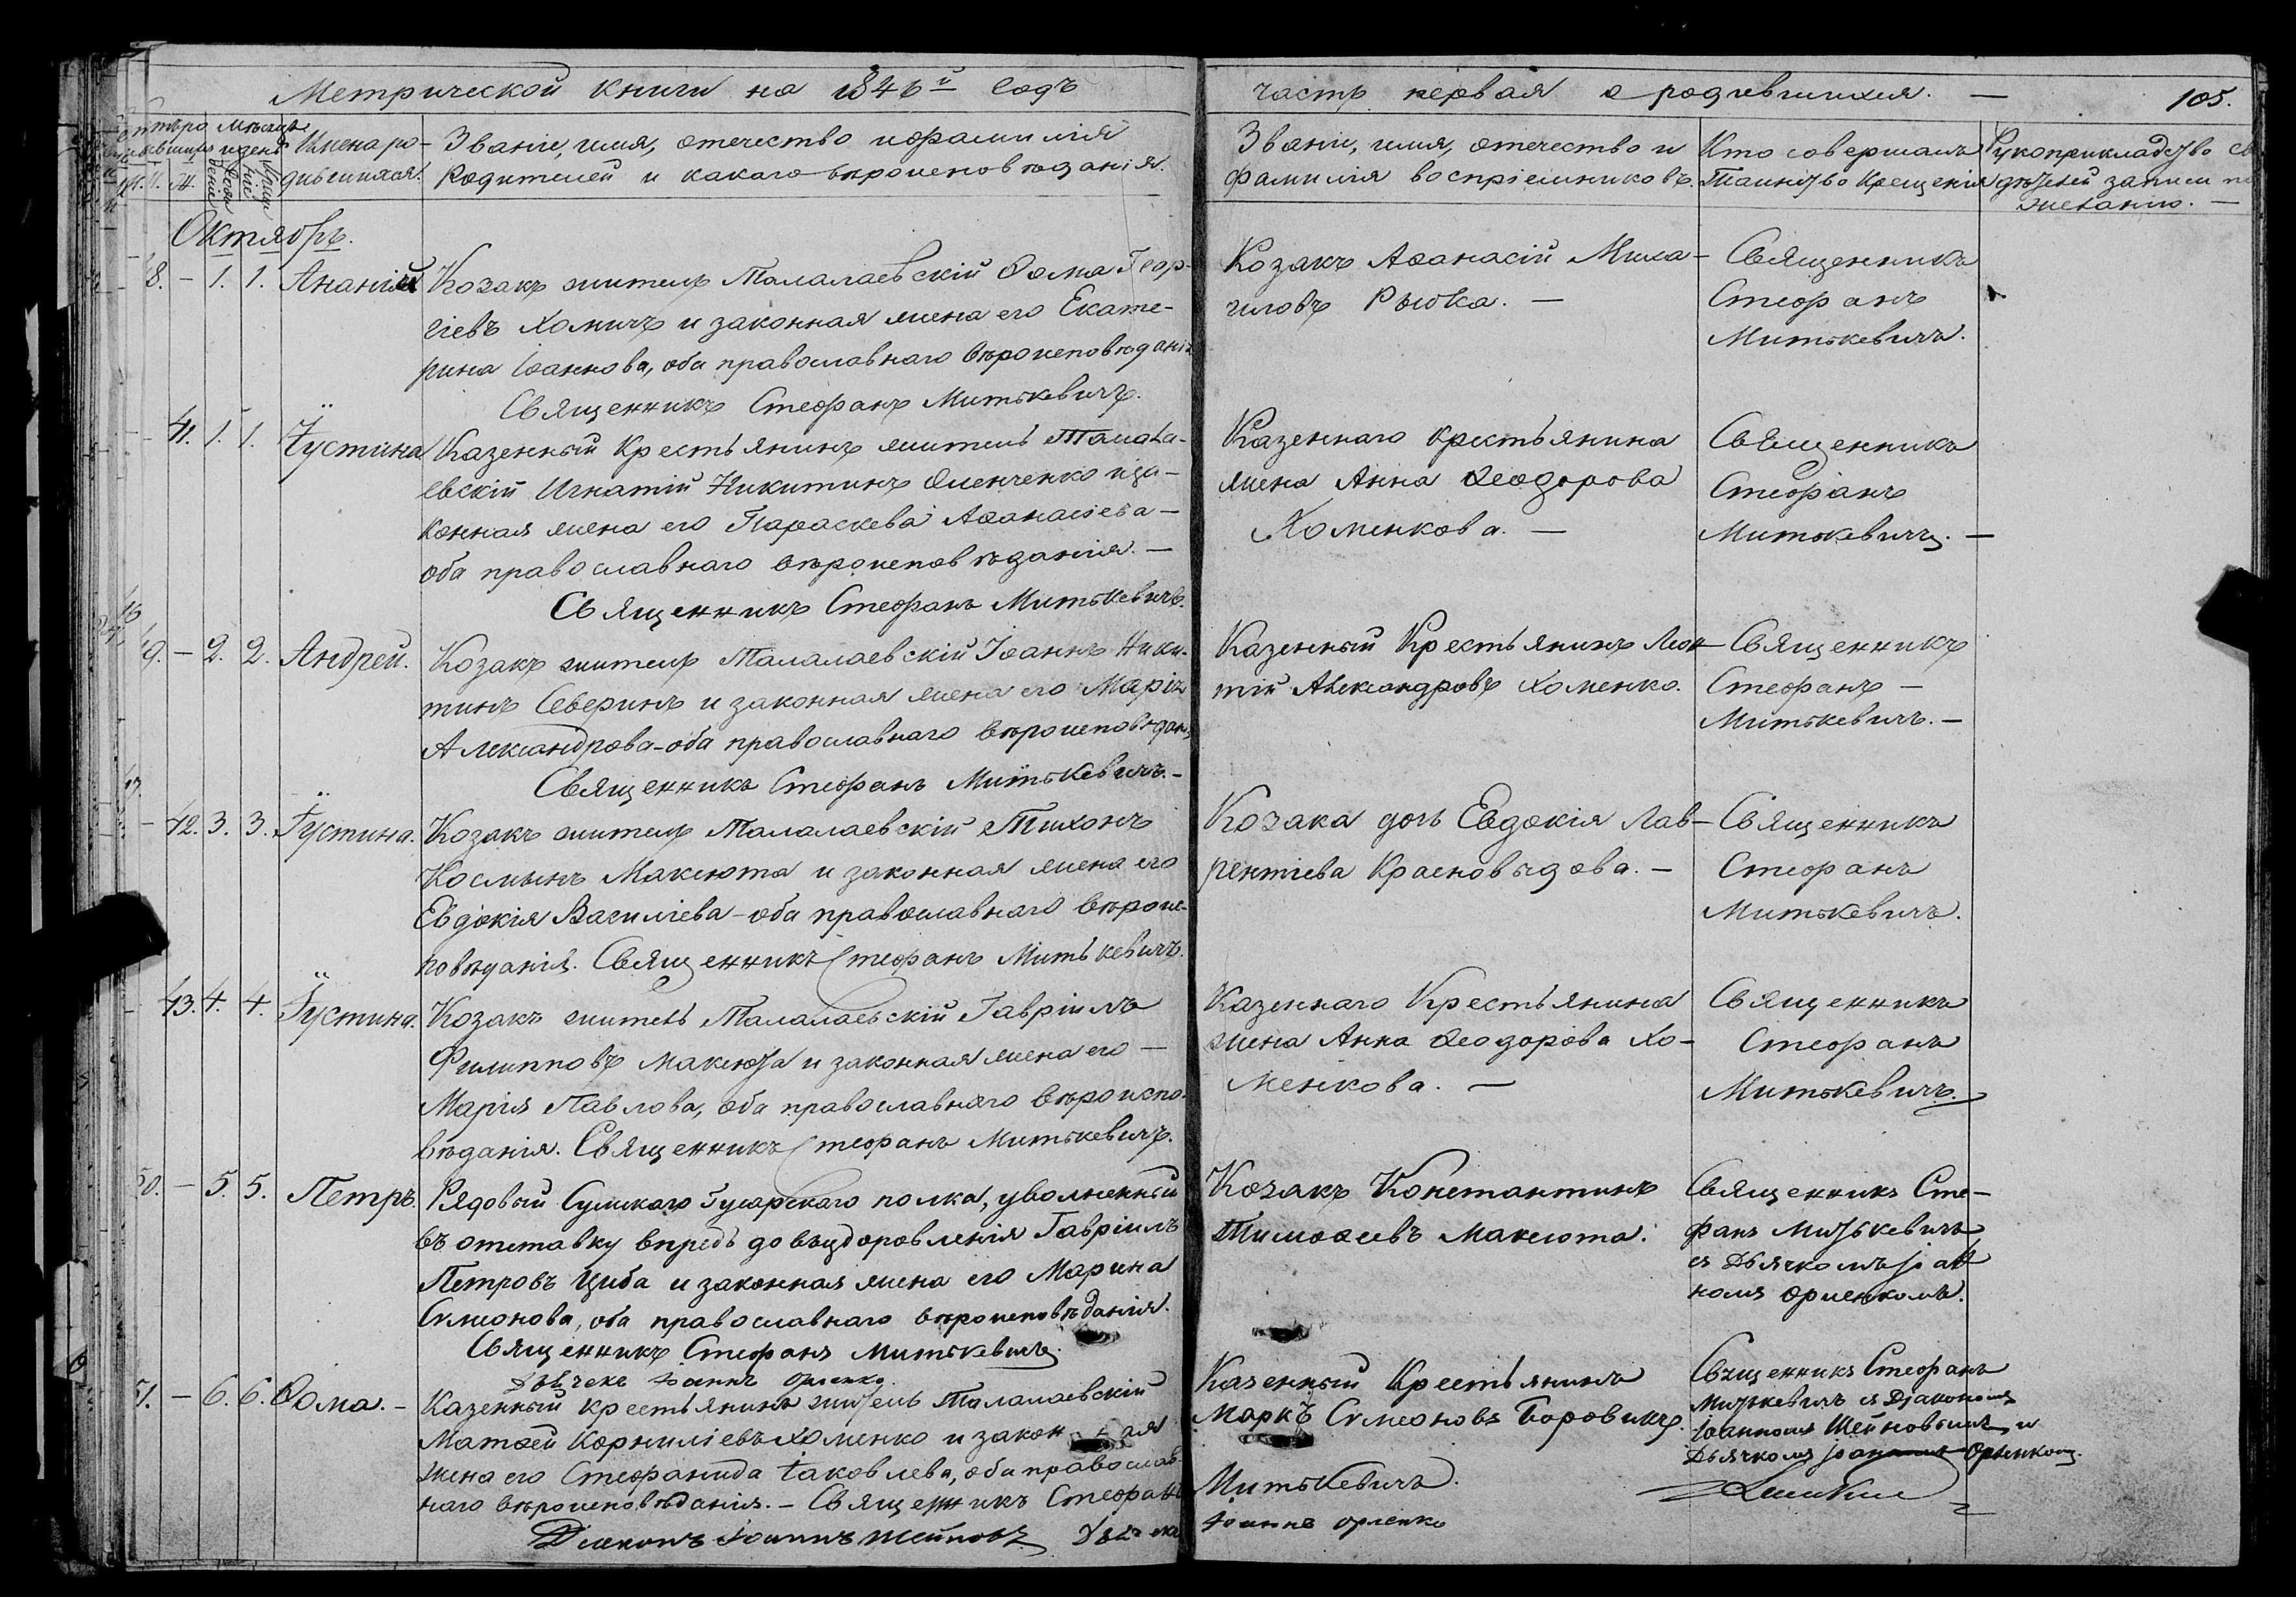 Метрической книги на 1846й годъ
часть первая о родившихся. —
105.
Имена ро-
дившихся.
Званіе, имя, отечество и фамилія
родителей и какаго вѣроисповѣданія.
Званіе, имя, отечество и
фамилія воспріемниковъ.
Кто совершалъ
Таинство Крещенія
Рукоприкладство
дѣтелей записи по
желанію. —
Октябрь.
48. — 1. 1. Ананій
Козакъ житель Талалаевскій Ѳома Геор-
гіевъ Хомичъ и законная жена его Екате-
рина Іоаннова, оба православнаго вѣроисповѣданія
Священникъ Стефанъ Митькевичъ.
Козакъ Аѳанасій Миха-
иловъ Рыбка. —
Священникъ
Стефанъ
Митькевичъ.
41. 1. 1. Іустина
Казенный Крестьянинъ житель Талала-
евскій Игнатій Никитинъ Оленченко и за-
конная жена его Параскева Аѳанасіева —
оба православнаго вѣроисповѣданія. —
Священникъ Стефанъ Митькевичъ.
Казеннаго крестьянина
жена Анна Ѳеодорова
Хоменкова. —
Священникъ
Стефанъ
Митькевичъ. —
49. — 2. 2. Андрей.
Козакъ житель Талалаевскій Іоаннъ Ники-
тинъ Северинъ и законная жена его Марія
Александрова - оба православнаго вѣроисповѣдан.
Священникъ Стефанъ Митькевичъ. —
Казенный Крестьянинъ Леон-
тій Александровъ Хоменко.
Священникъ
Стефанъ —
Митькевичъ. —
42. 3. 3. Іустина.
Козакъ житель Талалаевскій Тихонъ
Космынъ Максюта и законная жена его
Евдокія Василіева - оба православнаго вѣроис-
повѣданія. Священникъ Стефанъ Митькевичъ.
Козака дочь Евдокія Лав-
рентіева Красновыдова. —
Священникъ
Стефанъ
Митькевичъ.
43. 4. 4. Іустина.
Козакъ житель Талалаевскій Гавріилъ
Филипповъ Максюта и законная жена его —
Марія Павлова, оба православнаго вѣроиспо-
вѣданія. Священникъ Стефанъ Митькевичъ.
Казеннаго Крестьянина
жена Анна Ѳеодорова Хо-
менкова. —
Священникъ
Стефанъ
Митькевичъ.
50. — 5. 5. Петръ.
Рядовый Сумскаго Гусарскаго полка, уволненный
въ отставку впредь до выздоровленія Гавріилъ
Петровъ Циба и законная жена его Марина
Симеонова, оба православнаго вѣроисповѣданія.
Священникъ Стефанъ Митькевичъ.
Дьячекъ Іоаннъ Орленко
Козакъ Константинъ
Тимоѳеевъ Максюта.
Священникъ Сте-
фанъ Митькевичъ
съ Дьячкомъ Іоан
номъ Орленкомъ.
51. — 6. 6. Ѳома. —
Казенный крестьянинъ житель Талалаевскій
Матѳей Корниліевъ Хоменко и законная
жена его Стефанида Іаковлева, оба православ-
наго вѣроисповѣданія. — Священникъ Стефанъ Митькевичъ.
Діаконъ Іоаннъ Шейновъ Дьячекъ Іоаннъ Орленко
Казенный Крестьянинъ
Маркъ Симеоновъ Боровикъ.
Священникъ Стефанъ
Митькевичъ съ Діакономъ
Іоанномъ Шейновымъ и
Дьячкомъ Іоанномъ Орленкомъ.